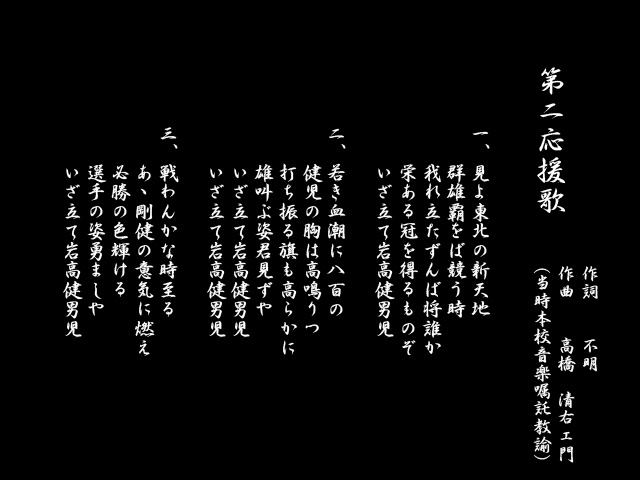 第二応援歌
作詞　不明
作曲　高橋　清右ェ門
(当時本校音楽嘱託教諭)
一、見よ東北の新天地
群雄覇をば競う時
我れ立たずんば将誰か
栄ある冠を得るものぞ
いざ立て岩高健男児
二、若き血潮に八百の
健児の胸は高鳴りつ
打ち振る旗も高らかに
雄叫ぶ姿君見ずや
いざ立て岩高健男児
いざ立て岩高健男児
三、戦わんかな時至る
あゝ剛健の意気に燃え
必勝の色輝ける
選手の姿勇ましや
いざ立て岩高健男児